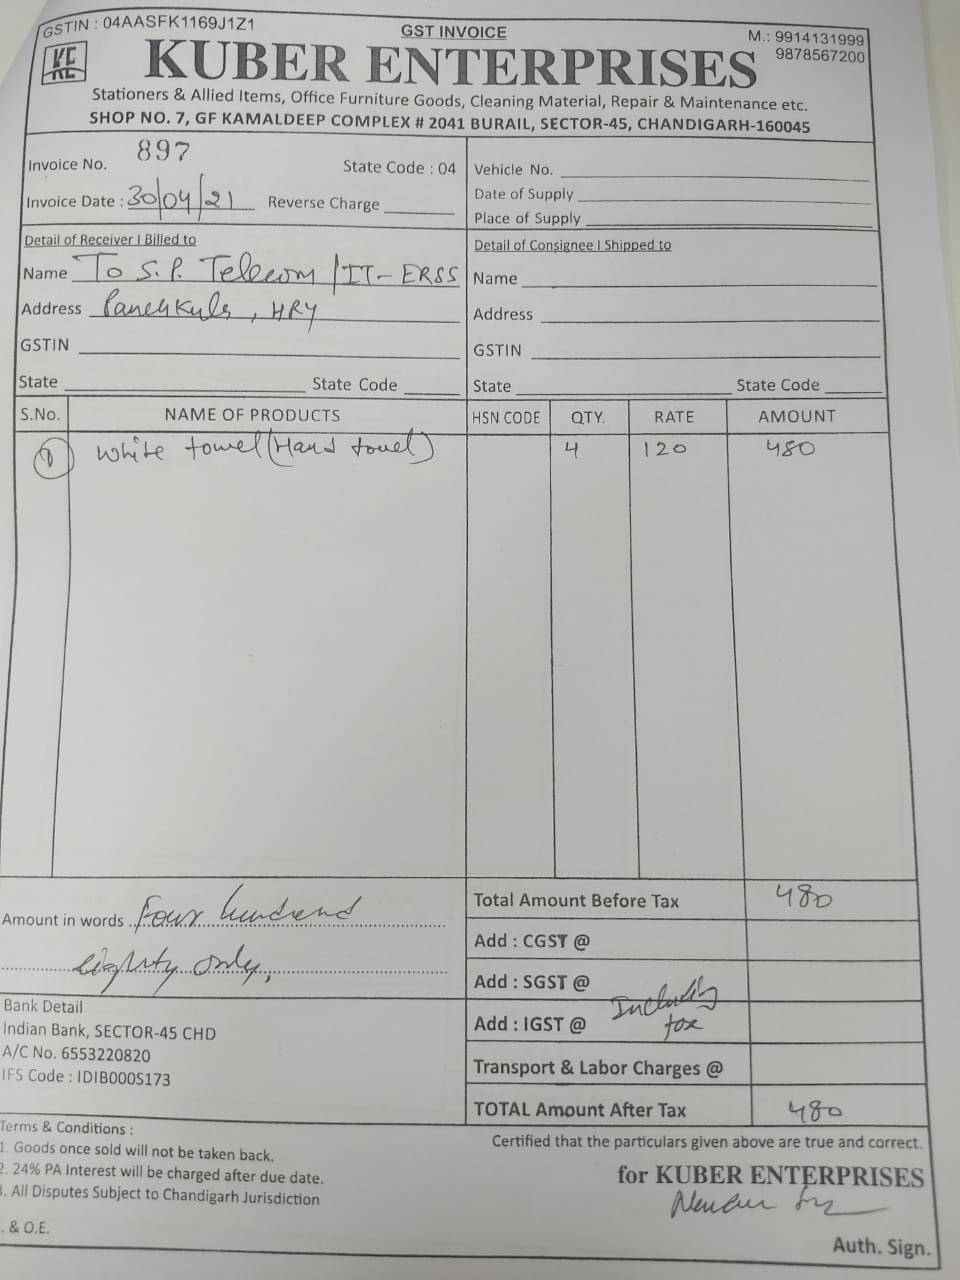 GSTIN : 04AASFK1169J1Z1
GST INVOICE
M.: 9914131999
9878567200
KUBER ENTERPRISES
Stationers & Allied Items, Office Furniture Goods, Cleaning Material, Repair & Maintenance etc.
SHOP NO. 7, GF KAMALDEEP COMPLEX # 2041 BURAIL, SECTOR-45, CHANDIGARH-160045
Invoice No. 897 State Code : 04
Invoice Date : 30/04/21 Reverse Charge
Vehicle No.
Date of Supply
Place of Supply
Detail of Receiver I Billed to
Name To S.P. Telecom/IT-ERSS
Address Panchkula, HRY
GSTIN
State State Code
Detail of Consignee I Shipped to
Name
Address
GSTIN
State State Code
S.No. NAME OF PRODUCTS HSN CODE QTY. RATE AMOUNT
1 White towel (Hand towel) 4 120 480
Amount in words Four hundrend
Eighty only,
Total Amount Before Tax 480
Add : CGST @
Add : SGST @
Add : IGST @
Including
tax
Transport & Labor Charges @
TOTAL Amount After Tax 480
Bank Detail
Indian Bank, SECTOR-45 CHD
A/C No. 6553220820
IFS Code : IDIB000S173
Terms & Conditions :
1. Goods once sold will not be taken back.
2. 24% PA Interest will be charged after due date.
. All Disputes Subject to Chandigarh Jurisdiction
. & O.E.
Certified that the particulars given above are true and correct.
for KUBER ENTERPRISES
Auth. Sign.